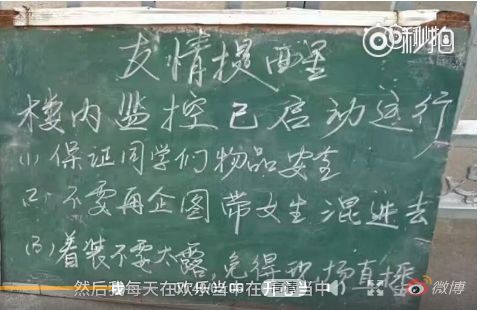 秒拍
友情提醒
楼内监控已启动运行
(1) 保证同学们物品安全
(2) 不要再企图带女生混进去
(3) 着装不要太露,免得现场直播
然后我每天在欢乐当中在开心当中
微博